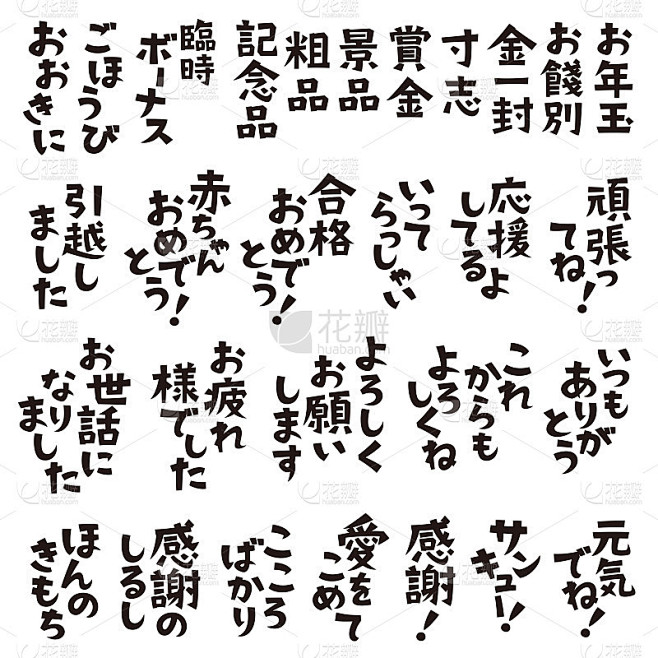 お年玉
お餞別
金一封
寸志
賞金
景品
粗品
記念品
臨時
ボーナス
ごほうび
おおきに
頑張っ
てね!
応援
してるよ
いって
らっしゃい
合格
おめで
とう!
赤ちゃん
おめで
とう!
引越し
ました
いつも
ありが
とう
これ
からも
よろ
しくね
よろしく
お願い
します
お疲れ
様でした
お世話に
なり
ました
元気
でね!
サン
キュー!
感謝!
愛を
こめて
こころ
ばかり
感謝の
しるし
ほんの
きもち
花瓣
huaban.com